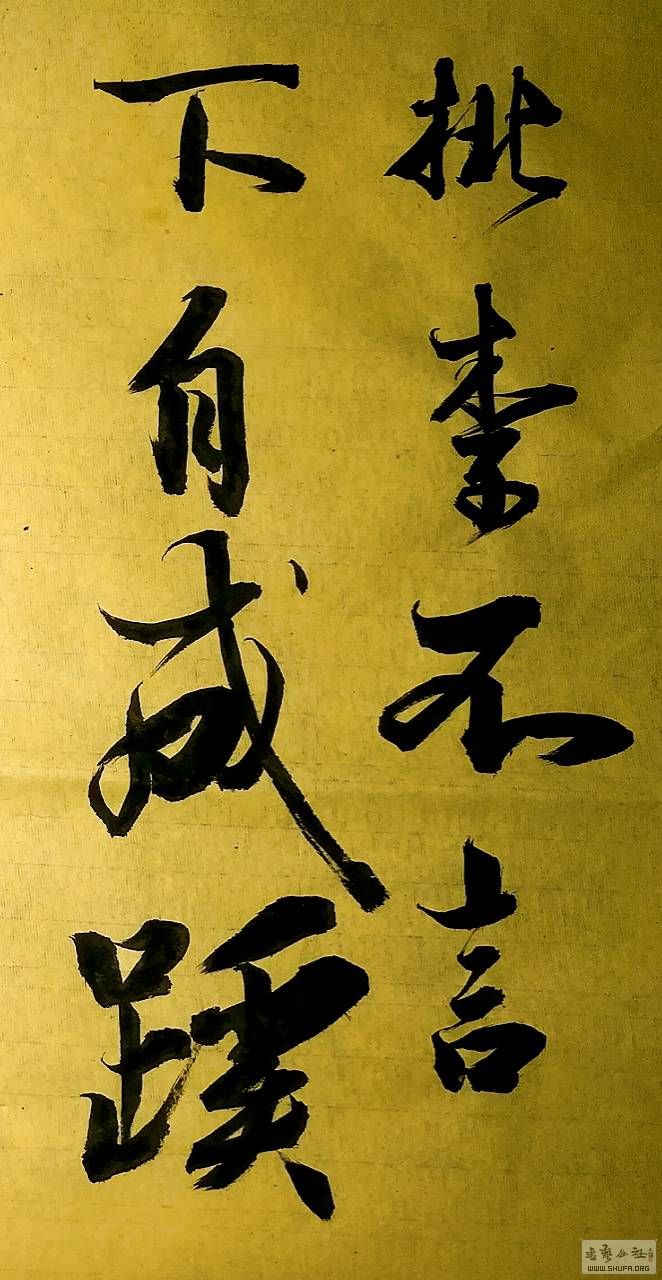 桃李不言
下自成蹊
书艺公社
WWW.SHUFA.ORG